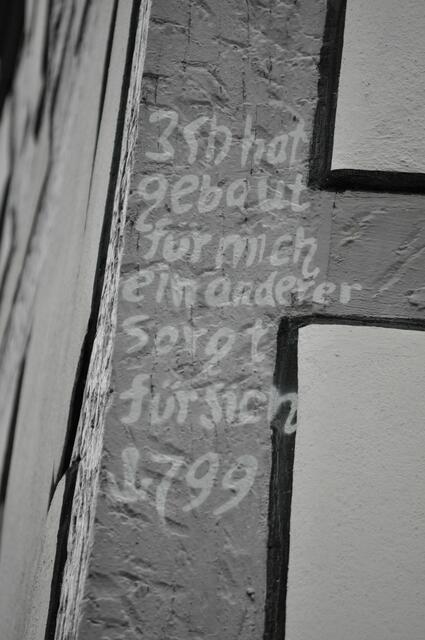 Ich hat
gebaut
für mich
ein anderer
sorgt
für sich
1799